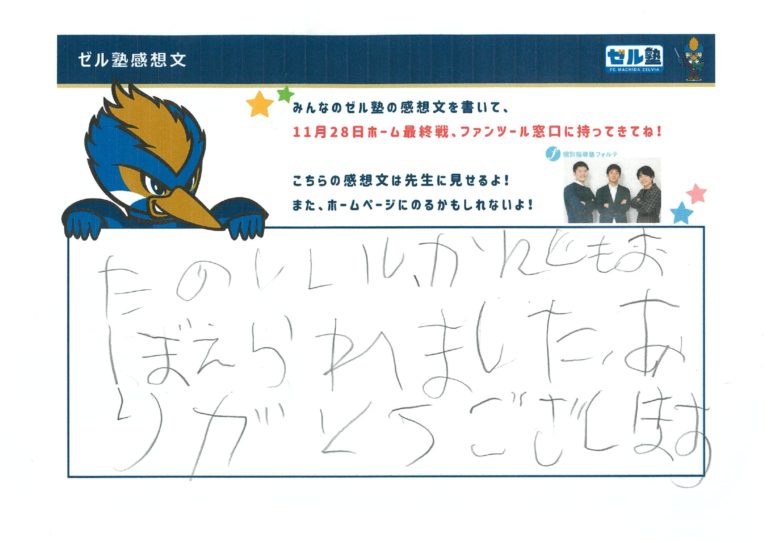 ゼル塾感想文
ゼル塾
FC MACHIDA ZELVIA
みんなのゼル塾の感想文を書いて、
11月28日ホーム最終戦、ファンツール窓口に持ってきてね！
個別指導塾フォルテ
こちらの感想文は先生に見せるよ！
また、ホームページにのるかもしれないよ！
たのしいし、かんじもお
ぼえられました、あ
りがとうございます